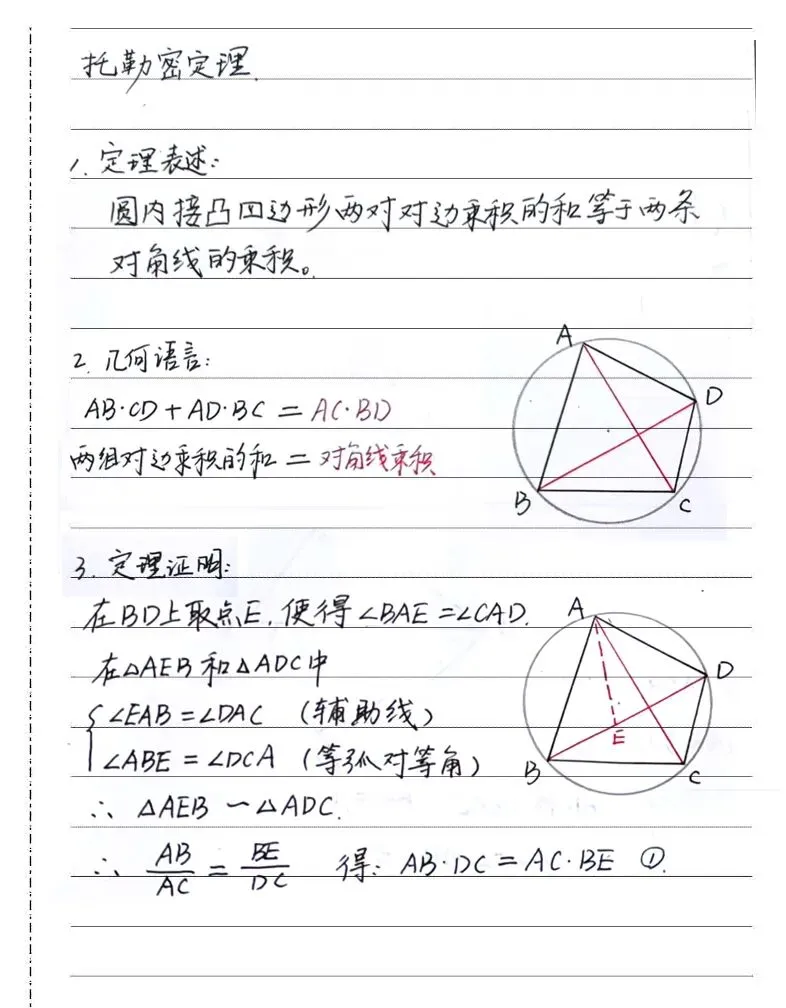 托勒密定理.
1. 定理表述:
圆内接凸四边形两对对边乘积的和等于两条
对角线的乘积。
2. 几何语言:
AB·CD+AD·BC=AC·BD
两组对边乘积的和=对角线乘积
A
D
B
C
3. 定理证明:
在BD上取点E,使得∠BAE=∠CAD.
在△AEB和△ADC中
{∠EAB=∠DAC (辅助线)
∠ABE=∠DCA (等弧对等角)
∴ △AEB∽△ADC.
∴ AB/AC=BE/DC 得: AB·DC=AC·BE ①.
A
D
E
B
C